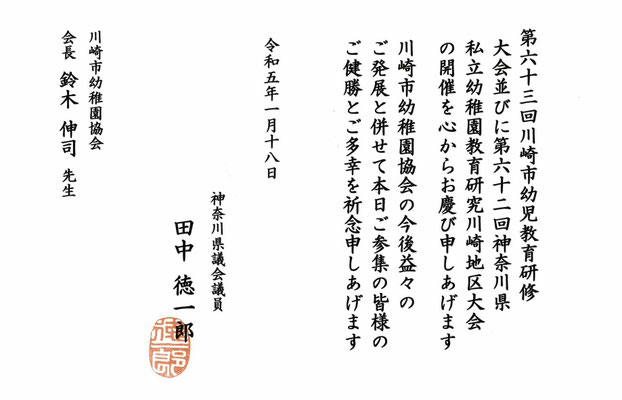 第六十三回川崎市幼児教育研修
大会並びに第六十二回神奈川県
私立幼稚園教育研究川崎地区大会
の開催を心からお慶び申しあげます
川崎市幼稚園協会の今後益々の
ご発展と併せて本日ご参集の皆様の
ご健勝とご多幸を祈念申しあげます
令和五年一月十八日
神奈川県議会議員
田中 徳一郎
川崎市幼稚園協会
会長 鈴木 伸司 先生